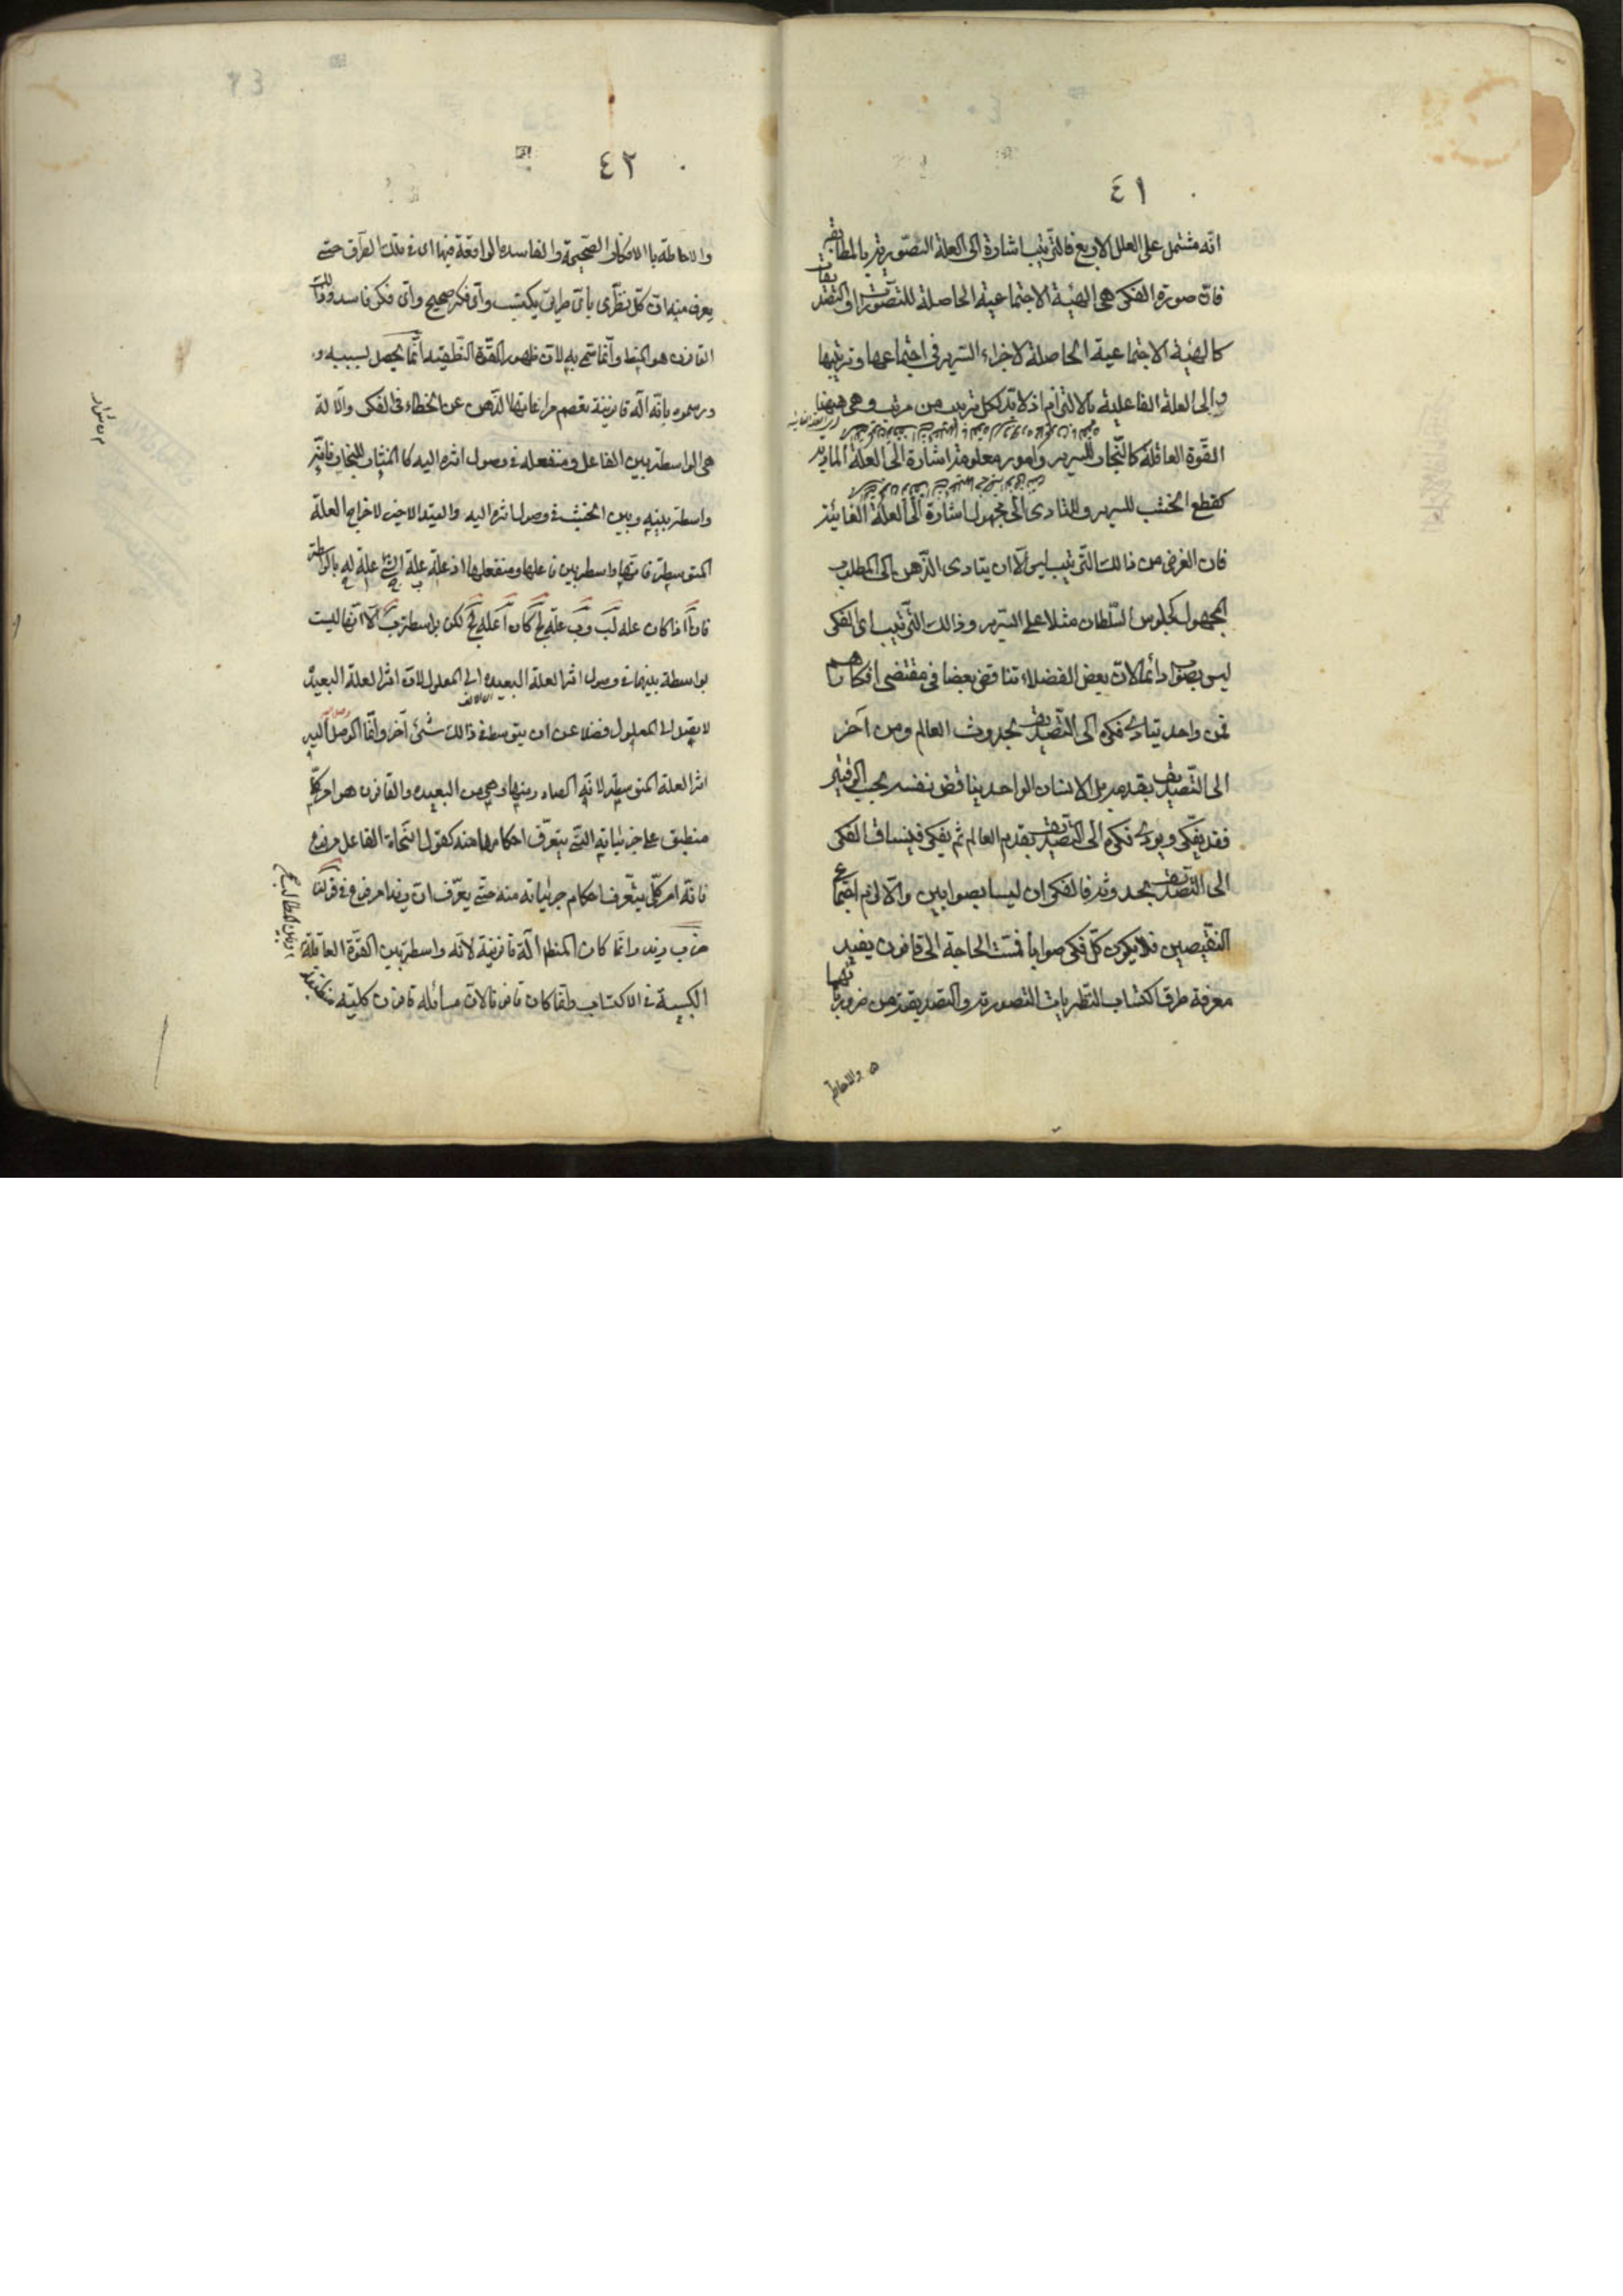 ٤١
انه مشتمل على العلل الاربع فالترتيب اشارة الى العلة التصورية بالمطابقة
فان صورة الفكر هى الهيئة الاجتماعية الحاصلة للتصورات او التصديقات
كالهيئة الاجتماعية الحاصلة لاجزاء السرير فى اجتماعها وترتيبها
والى العلة الفاعلية بالالتزام اذ لا بد لكل ترتيب من مرتب وهى ههنا
القوة العاقلة كالنجار للسرير وامور معلومة اشارة الى العلة المادية
كقطع الخشب للسرير وللتادى الى مجهول اشارة الى العلة الغائية
فان الغرض من ذالك الترتيب ليس الا ان يتادى الذهن الى المطلوب
المجهول كجلوس السلطان مثلا على السرير وذالك الترتيب اى الفكر
ليس بصواب دائما لان بعض الفضلاء تناقض بعضا فى مقتضى افكارهم
فمن واحد يتادى فكره الى التصديق بحدوث العالم ومن آخر
الى التصديق بقدمه بل الانسان الواحد يناقض نفسه بحسب الوقتين
فقد يفكر ويودى فكره الى التصديق بقدم العالم ثم يفكر فينساق الفكر
الى التصديق بحدوثه فالفكر ان ليسا بصوابين والا لزم اجتماع
النقيضين فلا يكون كل فكر صوابا فمست الحاجة الى قانون يفيد
معرفة طرق اكتساب النظريات التصورية والتصديقية من ضرورياتها
والاحاطة
٤٢
والاحاطة باالافكار الصحيحة والفاسده الواقعة فيها اى فى تلك الطرق حتى
يعرف منه ان كل نظرى باى طريق يكتسب واى فكر صحيح واى فكر فاسد وذالك
القانون هو المنطق وانما سمى به لان ظهور القوة النطقيه انما يحصل بسببه و
ورسموه بانه آلة قانونية تعصم مراعاتها الذهن عن الخطاء فى الفكر والالة
هى الواسطة بين الفاعل ومنفعله فى وصول اثره اليه كالمنشار للنجار فانه
واسطة بينه وبين الخشب فى وصول اثره اليه والقيد الاخير لاخراج العلة
المتوسطة فانها واسطة بين فاعلها ومنفعلها اذ علة علة الشئ علة له بالواسطة
فان آ اذا كان علة لب وب علة لج كان آ علة لج لكن بواسطة ب الا انها ليست
بواسطة بينهما فى وصول اثر العلة البعيده الى المعلول لان اثر العلة البعيدة
لا يصل الى المعلول فضلا عن ان يتوسط فى ذالك شئ آخر وانما الواصل اليه
اثر العلة المتوسطة لانه الصادر منها وهى من البعيده والقانون هو امر كلى
منطبق على جزئياته التى يتعرف احكامها منه كقول النحاة الفاعل مرفوع
فانه امر كلى يتعرف احكام جزئياته منه حتى يعرف ان زيدا مرفوع فى قولنا
ضرب زيد وانما كان المنطق آلة قانونية لانه واسطة بين القوة العاقلة
وبين المطالب
الكسبية فى الاكتساب وانما كان قانونا لان مسائله قوانين كلية منطبقة